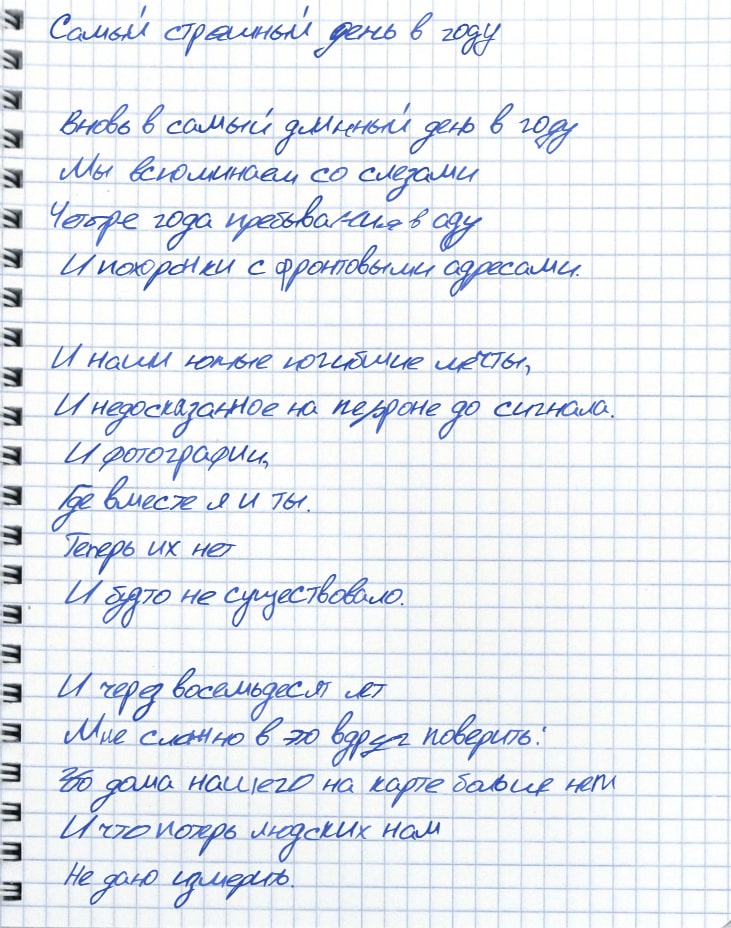 Самый страшный день в году
Вновь в самый длинный день в году
Мы вспоминаем со слезами
Четыре года пребывания в аду
И похоронки с фронтовыми адресами.
И наши юные погибшие мечты,
И недосказанное на перроне до сигнала.
И фотографии,
Где вместе я и ты.
Теперь их нет
И будто не существовало.
И через восемьдесят лет
Мне сложно в это вдруг поверить:
Что дома нашего на карте больше нет
И что потерь людских нам
Не дано измерить.